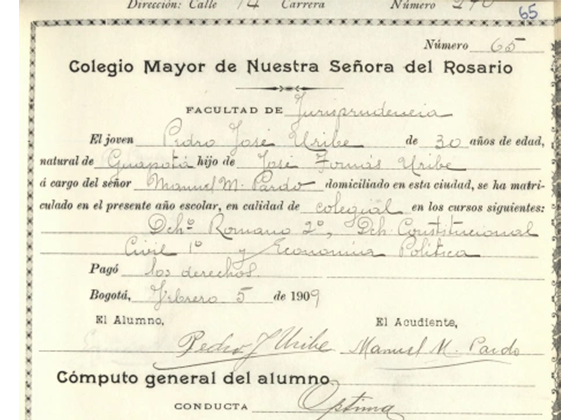 Dirección: Calle 14 Carrera Número 270
65
Número 65
Colegio Mayor de Nuestra Señora del Rosario
FACULTAD DE Jurisprudencia
El joven Pedro José Uribe de 30 años de edad,
natural de Guapotá hijo de José Tomás Uribe
á cargo del señor Manuel M. Pardo domiciliado en esta ciudad, se ha matri-
culado en el presente año escolar, en calidad de colegial en los cursos siguientes:
Dchº Romano 2º, Dch. Constitucional
Civil 1º y Economía Política
Pagó los derechos
Bogotá, Febrero 5 de 1909
El Alumno, El Acudiente,
Pedro J Uribe Manuel M. Pardo
Cómputo general del alumno
CONDUCTA Optima